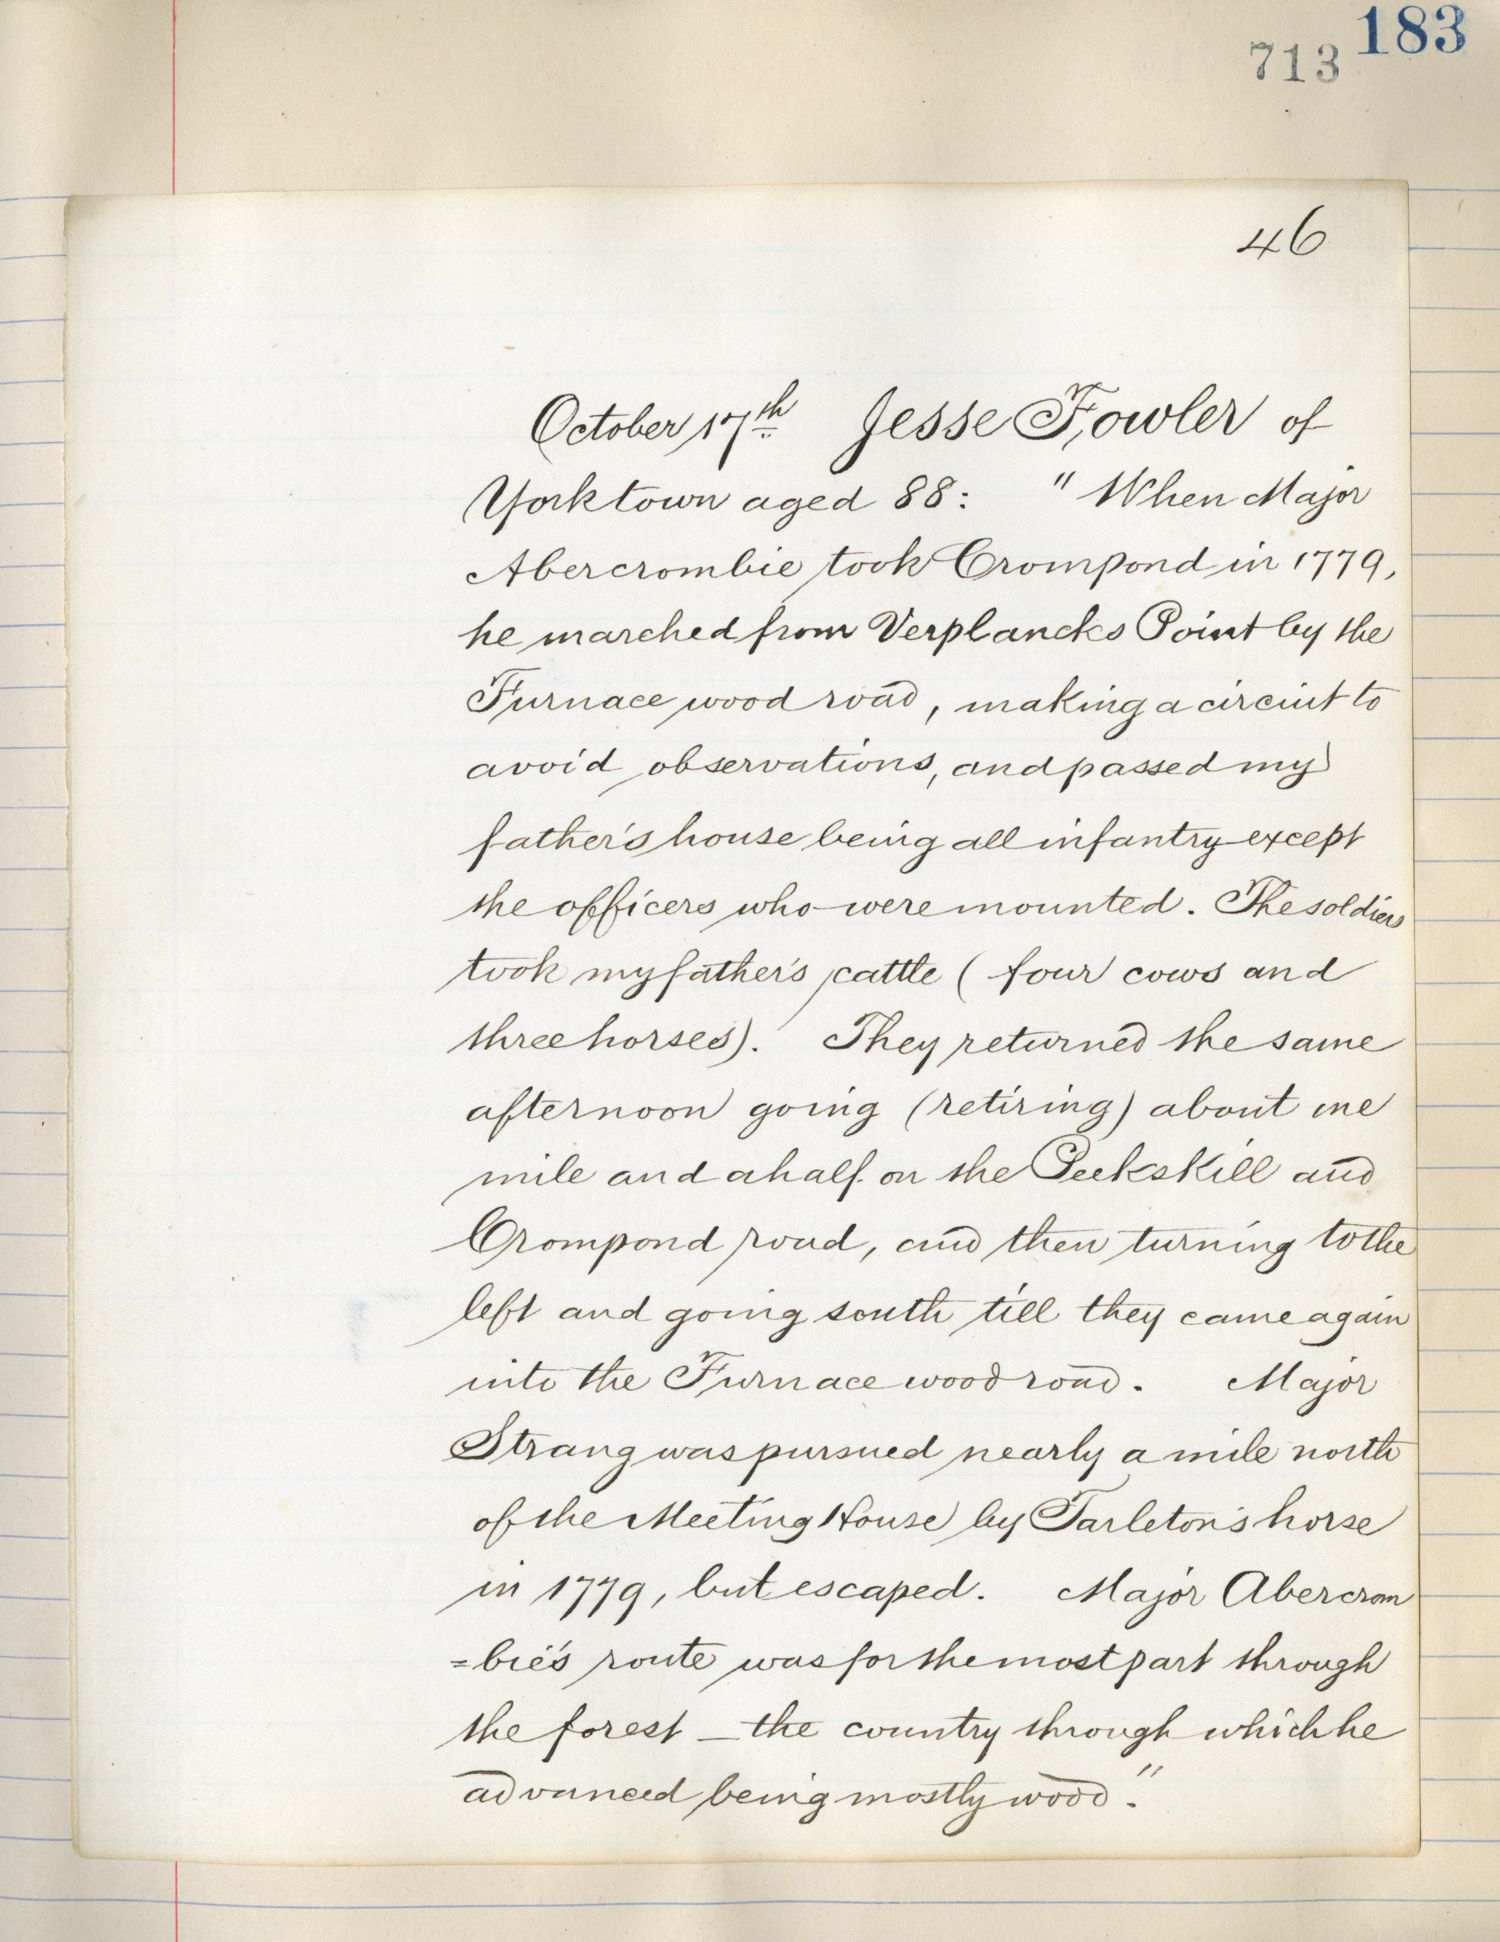 183
713
46
October 17th Jesse Fowler of
Yorktown aged 88: "When Major
Abercrombie took Crompond in 1779,
he marched from Verplancks Point by the
Furnace wood road, making a circuit to
avoid observations, and passed my
father's house being all infantry except
the officers who were mounted. The soldiers
took my father's cattle (four cows and
three horses). They returned the same
afternoon going (retiring) about one
mile and a half on the Peekskill and
Crompond road, and then turning to the
left and going south till they came again
into the Furnace wood road. Major
Strang was pursued nearly a mile north
of the Meeting House by Tarleton's horse
in 1779, but escaped. Major Abercrom
=bie's route was for the most part through
the forest – the country through which he
advanced being mostly wood."